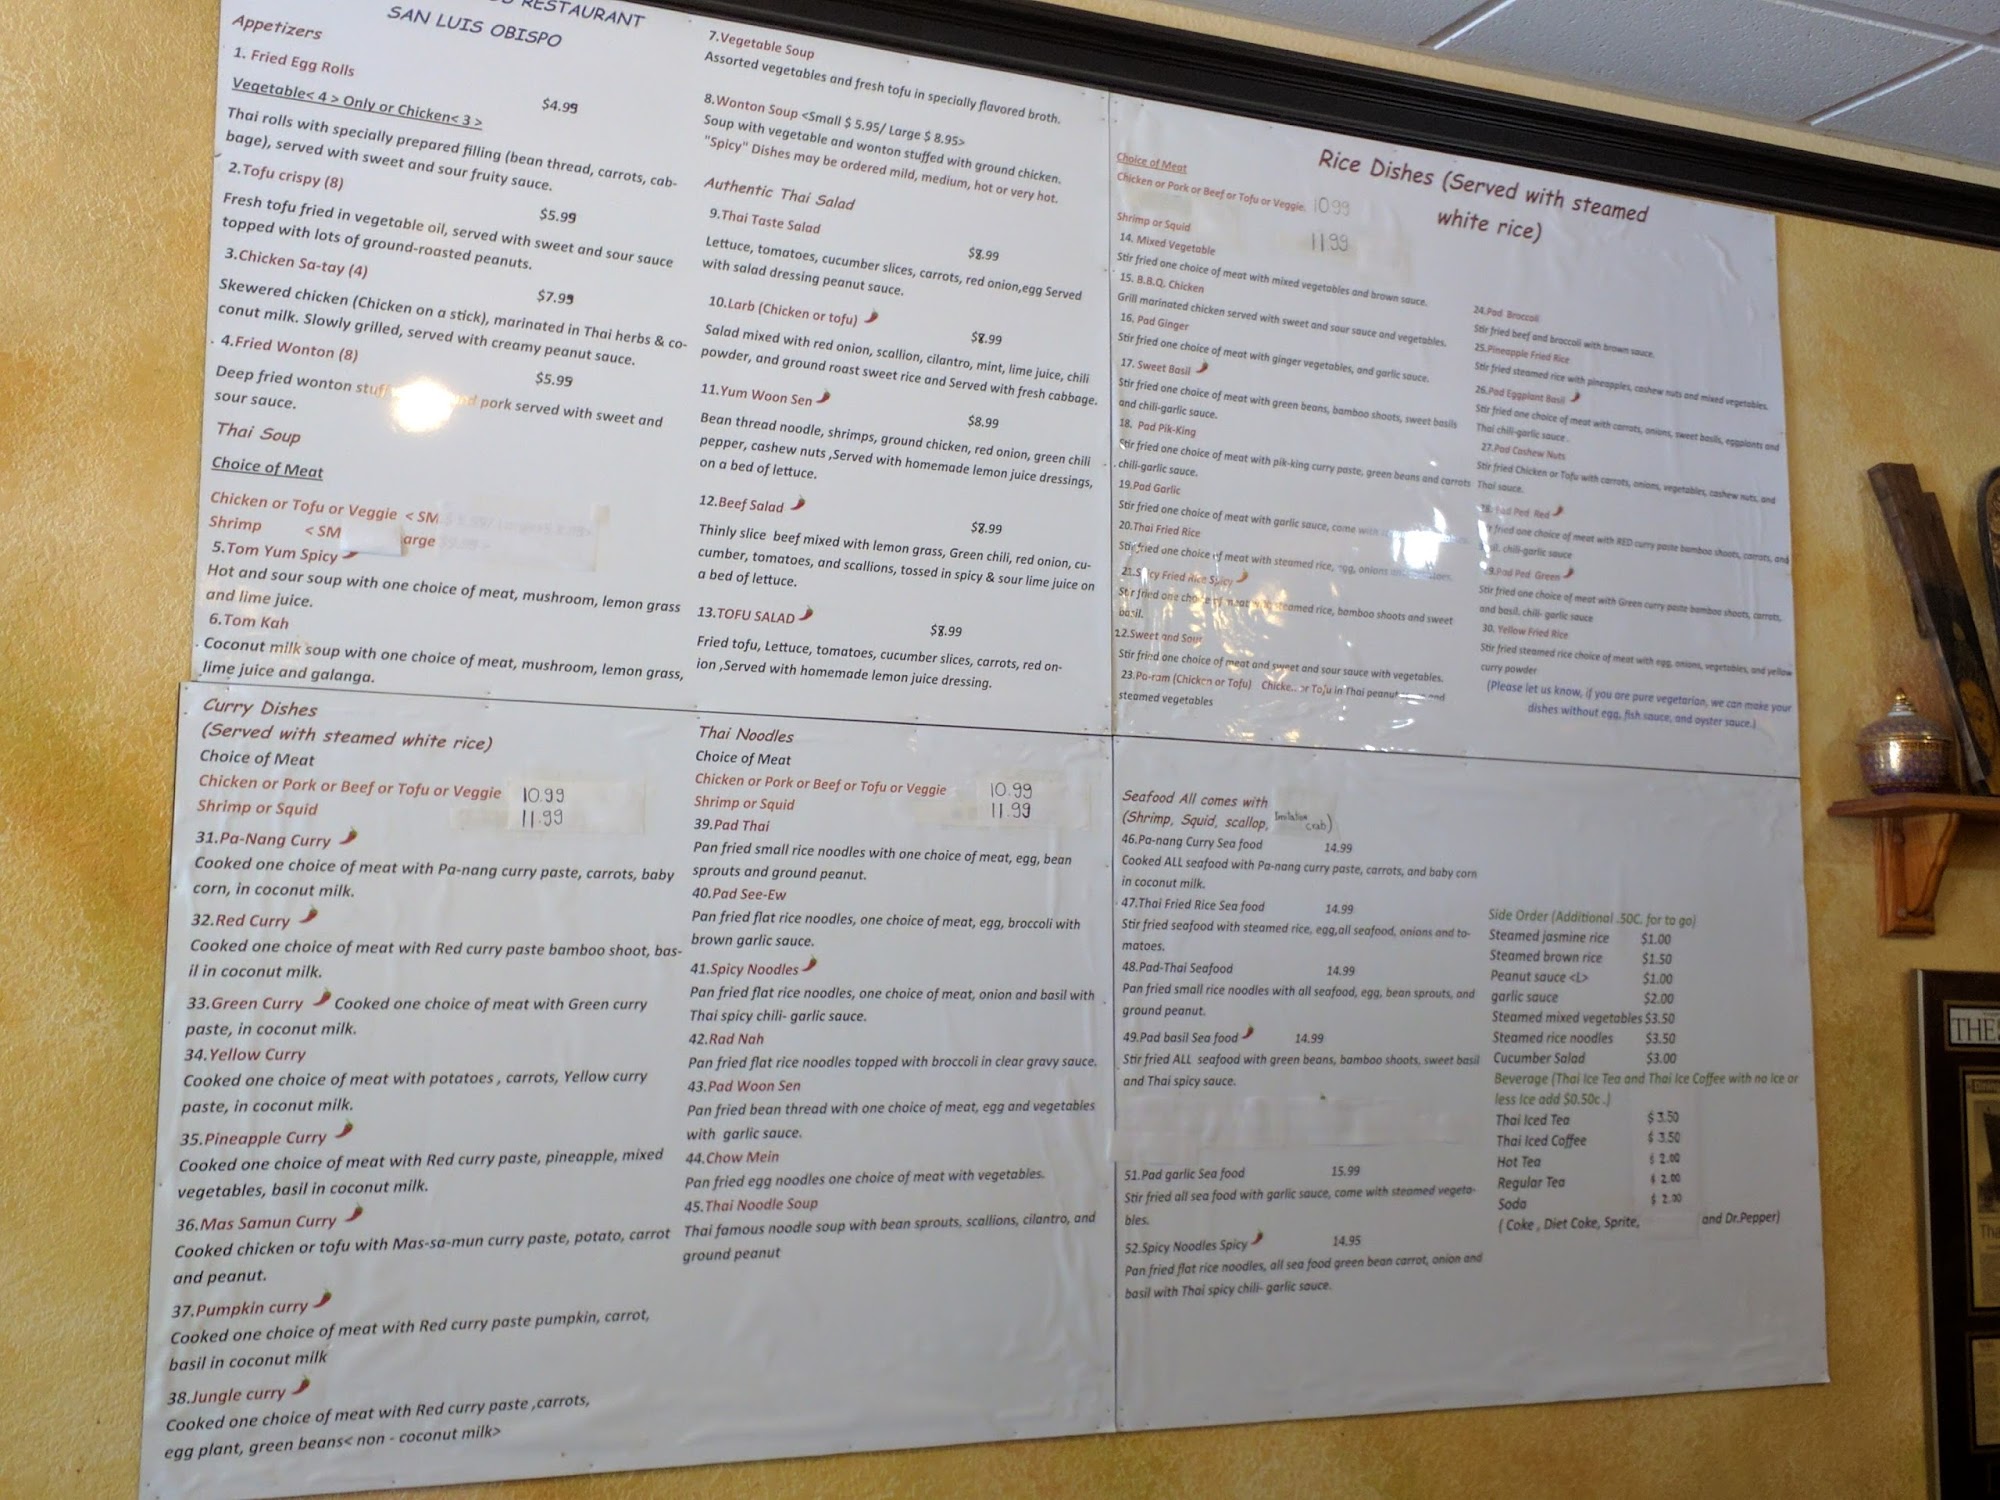 RESTAURANT
SAN LUIS OBISPO
Appetizers
1. Fried Egg Rolls
Vegetable< 4 > Only or Chicken< 3 >
$4.99
Thai rolls with specially prepared filling (bean thread, carrots, cab-
bage), served with sweet and sour fruity sauce.
2.Tofu crispy (8)
$5.99
Fresh tofu fried in vegetable oil, served with sweet and sour sauce
topped with lots of ground-roasted peanuts.
3.Chicken Sa-tay (4)
$7.99
Skewered chicken (Chicken on a stick), marinated in Thai herbs & co-
conut milk. Slowly grilled, served with creamy peanut sauce.
4.Fried Wonton (8)
$5.99
Deep fried wonton pork served with sweet and
sour sauce.
Thai Soup
Choice of Meat
Chicken or Tofu or Veggie < SM
Shrimp < SM arge
5.Tom Yum Spicy
Hot and sour soup with one choice of meat, mushroom, lemon grass
and lime juice.
6.Tom Kah
Coconut milk soup with one choice of meat, mushroom, lemon grass,
lime juice and galanga.
7.Vegetable Soup
Assorted vegetables and fresh tofu in specially flavored broth.
8.Wonton Soup <Small $ 5.95/ Large $ 8.95>
Soup with vegetable and wonton stuffed with ground chicken.
"Spicy" Dishes may be ordered mild, medium, hot or very hot.
Authentic Thai Salad
9.Thai Taste Salad
$8.99
Lettuce, tomatoes, cucumber slices, carrots, red onion,egg Served
with salad dressing peanut sauce.
10.Larb (Chicken or tofu)
$8.99
Salad mixed with red onion, scallion, cilantro, mint, lime juice, chili
powder, and ground roast sweet rice and Served with fresh cabbage.
11.Yum Woon Sen
$8.99
Bean thread noodle, shrimps, ground chicken, red onion, green chili
pepper, cashew nuts ,Served with homemade lemon juice dressings,
on a bed of lettuce.
12.Beef Salad
$8.99
Thinly slice beef mixed with lemon grass, Green chili, red onion, cu-
cumber, tomatoes, and scallions, tossed in spicy & sour lime juice on
a bed of lettuce.
13.TOFU SALAD
$8.99
Fried tofu, Lettuce, tomatoes, cucumber slices, carrots, red on-
ion ,Served with homemade lemon juice dressing.
Rice Dishes (Served with steamed
white rice)
Choice of Meat
Chicken or Pork or Beef or Tofu or Veggie. 10.99
Shrimp or Squid 11.99
14. Mixed Vegetable
Stir fried one choice of meat with mixed vegetables and brown sauce.
15. B.B.Q. Chicken
Grill marinated chicken served with sweet and sour sauce and vegetables.
16. Pad Ginger
Stir fried one choice of meat with ginger vegetables, and garlic sauce.
17. Sweet Basil
Stir fried one choice of meat with green beans, bamboo shoots, sweet basils
and chili-garlic sauce.
18. Pad Pik-King
Stir fried one choice of meat with pik-king curry paste, green beans and carrots
chili-garlic sauce.
19.Pad Garlic
Stir fried one choice of meat with garlic sauce, come with
20.Thai Fried Rice
Stir fried one choice of meat with steamed rice, egg, onions
Fried Rice Spicy
Stir fried one choice of meat steamed rice, bamboo shoots and sweet
basil.
22.Sweet and Sour
Stir fried one choice of meat and sweet and sour sauce with vegetables.
23.Pa-ram (Chicken or Tofu) or Tofu in Thai peanut and
steamed vegetables
24.Pad Broccoli
Stir fried beef and broccoli with brown sauce.
25.Pineapple Fried Rice
Stir fried steamed rice with pineapples, cashew nuts and mixed vegetables.
26.Pad Eggplant Basil
Stir fried one choice of meat with carrots, onions, sweet basils, eggplants and
Thai chili-garlic sauce.
27.Pad Cashew Nuts
Stir fried Chicken or Tofu with carrots, onions, vegetables, cashew nuts, and
Thai sauce.
28. Pad Ped Red
Stir fried one choice of meat with RED curry paste bamboo shoots, carrots, and
basil, chili-garlic sauce
29.Pad Ped Green
Stir fried one choice of meat with Green curry paste bamboo shoots, carrots,
and basil, chili- garlic sauce
30. Yellow Fried Rice
Stir fried steamed rice choice of meat with egg, onions, vegetables, and yellow
curry powder
(Please let us know, if you are pure vegetarian, we can make your
dishes without egg, fish sauce, and oyster sauce.)
Curry Dishes
(Served with steamed white rice)
Choice of Meat
Chicken or Pork or Beef or Tofu or Veggie 10.99
Shrimp or Squid 11.99
31.Pa-Nang Curry
Cooked one choice of meat with Pa-nang curry paste, carrots, baby
corn, in coconut milk.
32.Red Curry
Cooked one choice of meat with Red curry paste bamboo shoot, bas-
il in coconut milk.
33.Green Curry Cooked one choice of meat with Green curry
paste, in coconut milk.
34.Yellow Curry
Cooked one choice of meat with potatoes , carrots, Yellow curry
paste, in coconut milk.
35.Pineapple Curry
Cooked one choice of meat with Red curry paste, pineapple, mixed
vegetables, basil in coconut milk.
36.Mas Samun Curry
Cooked chicken or tofu with Mas-sa-mun curry paste, potato, carrot
and peanut.
37.Pumpkin curry
Cooked one choice of meat with Red curry paste pumpkin, carrot,
basil in coconut milk
38.Jungle curry
Cooked one choice of meat with Red curry paste ,carrots,
egg plant, green beans< non - coconut milk>
Thai Noodles
Choice of Meat
Chicken or Pork or Beef or Tofu or Veggie 10.99
Shrimp or Squid 11.99
39.Pad Thai
Pan fried small rice noodles with one choice of meat, egg, bean
sprouts and ground peanut.
40.Pad See-Ew
Pan fried flat rice noodles, one choice of meat, egg, broccoli with
brown garlic sauce.
41.Spicy Noodles
Pan fried flat rice noodles, one choice of meat, onion and basil with
Thai spicy chili- garlic sauce.
42.Rad Nah
Pan fried flat rice noodles topped with broccoli in clear gravy sauce.
43.Pad Woon Sen
Pan fried bean thread with one choice of meat, egg and vegetables
with garlic sauce.
44.Chow Mein
Pan fried egg noodles one choice of meat with vegetables.
45.Thai Noodle Soup
Thai famous noodle soup with bean sprouts, scallions, cilantro, and
ground peanut
Seafood All comes with
(Shrimp, Squid, scallop, Imitation crab)
46.Pa-nang Curry Sea food 14.99
Cooked ALL seafood with Pa-nang curry paste, carrots, and baby corn
in coconut milk.
47.Thai Fried Rice Sea food 14.99
Stir fried seafood with steamed rice, egg,all seafood, onions and to-
matoes.
48.Pad-Thai Seafood 14.99
Pan fried small rice noodles with all seafood, egg, bean sprouts, and
ground peanut.
49.Pad basil Sea food 14.99
Stir fried ALL seafood with green beans, bamboo shoots, sweet basil
and Thai spicy sauce.
51.Pad garlic Sea food 15.99
Stir fried all sea food with garlic sauce, come with steamed vegeta-
bles.
52.Spicy Noodles Spicy 14.95
Pan fried flat rice noodles, all sea food green bean carrot, onion and
basil with Thai spicy chili- garlic sauce.
Side Order (Additional .50C. for to go)
Steamed jasmine rice $1.00
Steamed brown rice $1.50
Peanut sauce <L> $1.00
garlic sauce $2.00
Steamed mixed vegetables $3.50
Steamed rice noodles $3.50
Cucumber Salad $3.00
Beverage (Thai Ice Tea and Thai Ice Coffee with no Ice or
less Ice add $0.50c .)
Thai Iced Tea $ 3.50
Thai Iced Coffee $ 3.50
Hot Tea $ 2.00
Regular Tea $ 2.00
Soda $ 2.00
( Coke , Diet Coke, Sprite, and Dr.Pepper)
THE